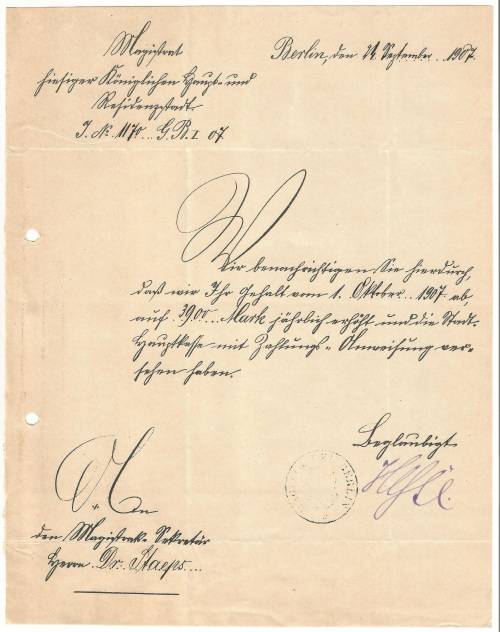 Magistrat
hiesiger Königlichen Haupt- und
Residenzstadt.
J. No. 1170. G. B. I 07.
Berlin, den 24. September 1907.
Wir benachrichtigen Sie hierdurch
daß wir Ihr Gehalt vom 1. Oktober 1907 ab,
auf 3900 Mark jährlich erhöht und die Stadt-
Hauptkasse mit Zahlungs-Anweisung ver-
sehen haben.
Beglaubigt
BERLIN
An
den Magistrats-Sekretär
Herrn Dr. Staeps.